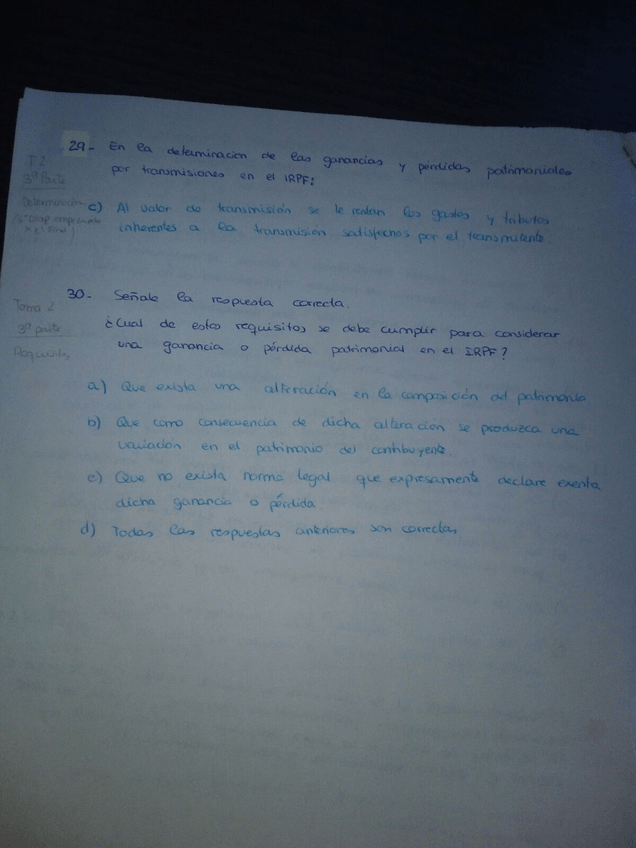 29- En la determinacion de las ganancias y pérdidas patrimoniales
por transmisiones en el IRPF:
T 2
3ª Parte
Determinación
c) Al valor de transmisión se le restan los gastos y tributos
inherentes a la transmisión satisfechos por el transmitente.
30- Señale la respuesta correcta.
¿Cual de estos requisitos se debe cumplir para considerar
una ganancia o pérdida patrimonial en el IRPF?
Tema 2
3ª parte
Requisitos
a) Que exista una alteración en la composición del patrimonio
b) Que como consecuencia de dicha alteración se produzca una
variación en el patrimonio del contribuyente.
c) Que no exista norma legal que expresamente declare exenta
dicha ganancia o pérdida.
d) Todas las respuestas anteriores son correctas